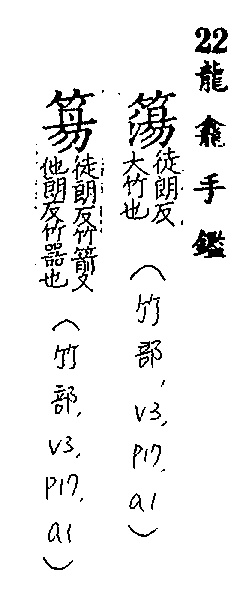 22龍龕手鑑
簜徒朗反
大竹也
(竹部,
V3,
P17,
a1)
簩徒朗反竹箭又
他朗反竹器也
(竹部,
V3,
P17,
a1)